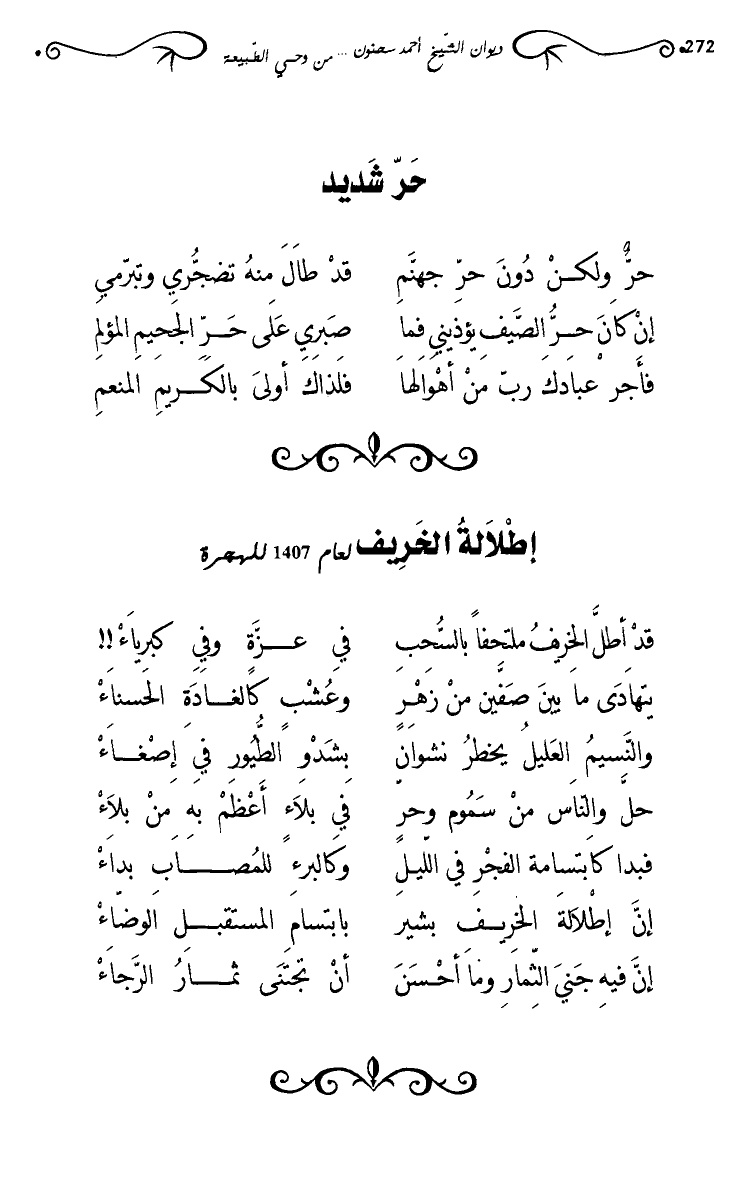 272 ديوان الشّيخ أحمد سحنون ... من وحي الطّبيعة
حَرّ شَديد
حرٌّ ولكـنْ دُونَ حرِّ جهنَّمِ قدْ طالَ مِنهُ تضجُّري وتبرّمي
إنْ كانَ حـرُّ الصَّيفِ يؤذيني فما صَبري عَلى حَـرّ الجحيمِ المؤلمِ
فأَجرْ عبادك ربّ منْ أهْوالها فلذاكَ أولىَ بالكـريمِ المنعمِ
إطْلاَلةُ الخَرِيف لعام 1407 للهجرة
قدْ أطلَّ الخريفُ ملتحفاً بالسُّحبِ في عـزَّةٍ وفي كبرياَءْ!!
يتهادَى ما بينَ صَفّينِ منْ زهْـرٍ وعُشْبٍ كَالغـادَةِ الحَسناءْ
والنَّسيمُ العَليلُ يخطرُ نشوانَ بِشَدْوِ الطُّيورِ في إصْغـاءْ
حلَّ والنّاس منْ سَمُومٍ وحرٍّ في بلاَءٍ أَعْظمْ بهِ مِنْ بلاَءْ
فبدا كابتسامة الفجْرِ في اللّيلِ وكالبرءِ للمُصـابِ بداءْ
إنَّ إطلاَلةَ الخريـف بشير بابتسامِ المستقبـل الوضّاءْ
إنَّ فيهِ جَنيَ الثّمارِ وما أحْسنَ أنْ تجتَنَى ثمـارُ الرَّجاءْ